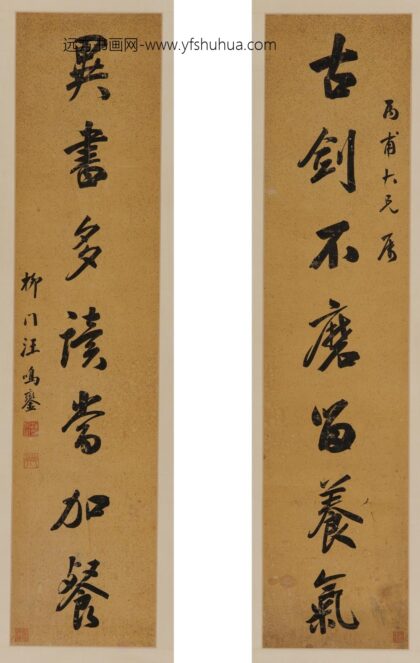 远方书画网-www.yfshuhua.com
丙甫大兄屬
古劍不磨留養氣
異書多讀當加餐
柳門汪鳴鑾